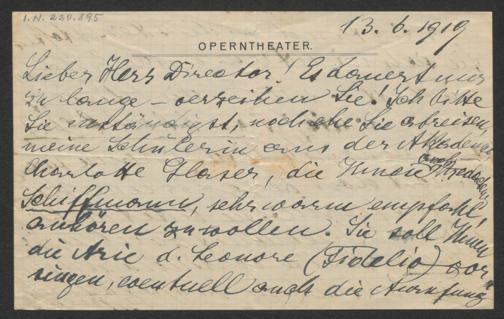 I.N. 220.895
13. 6. 1919
OPERNTHEATER.
Lieber Herr Director! Es dauert mir
zu lange – verzeihen Sie! Ich bitte
Sie inständigst, noch ehe Sie abreisen,
meine Schülerin aus der Akademie
Charlotte Glaser, die Ihnen auch
Schiffmann, sehr warm empfahl,
anhören zu wollen. Sie soll Ihnen
die Arie d. Leonore (Fidelio) vor
singen, eventuell auch die